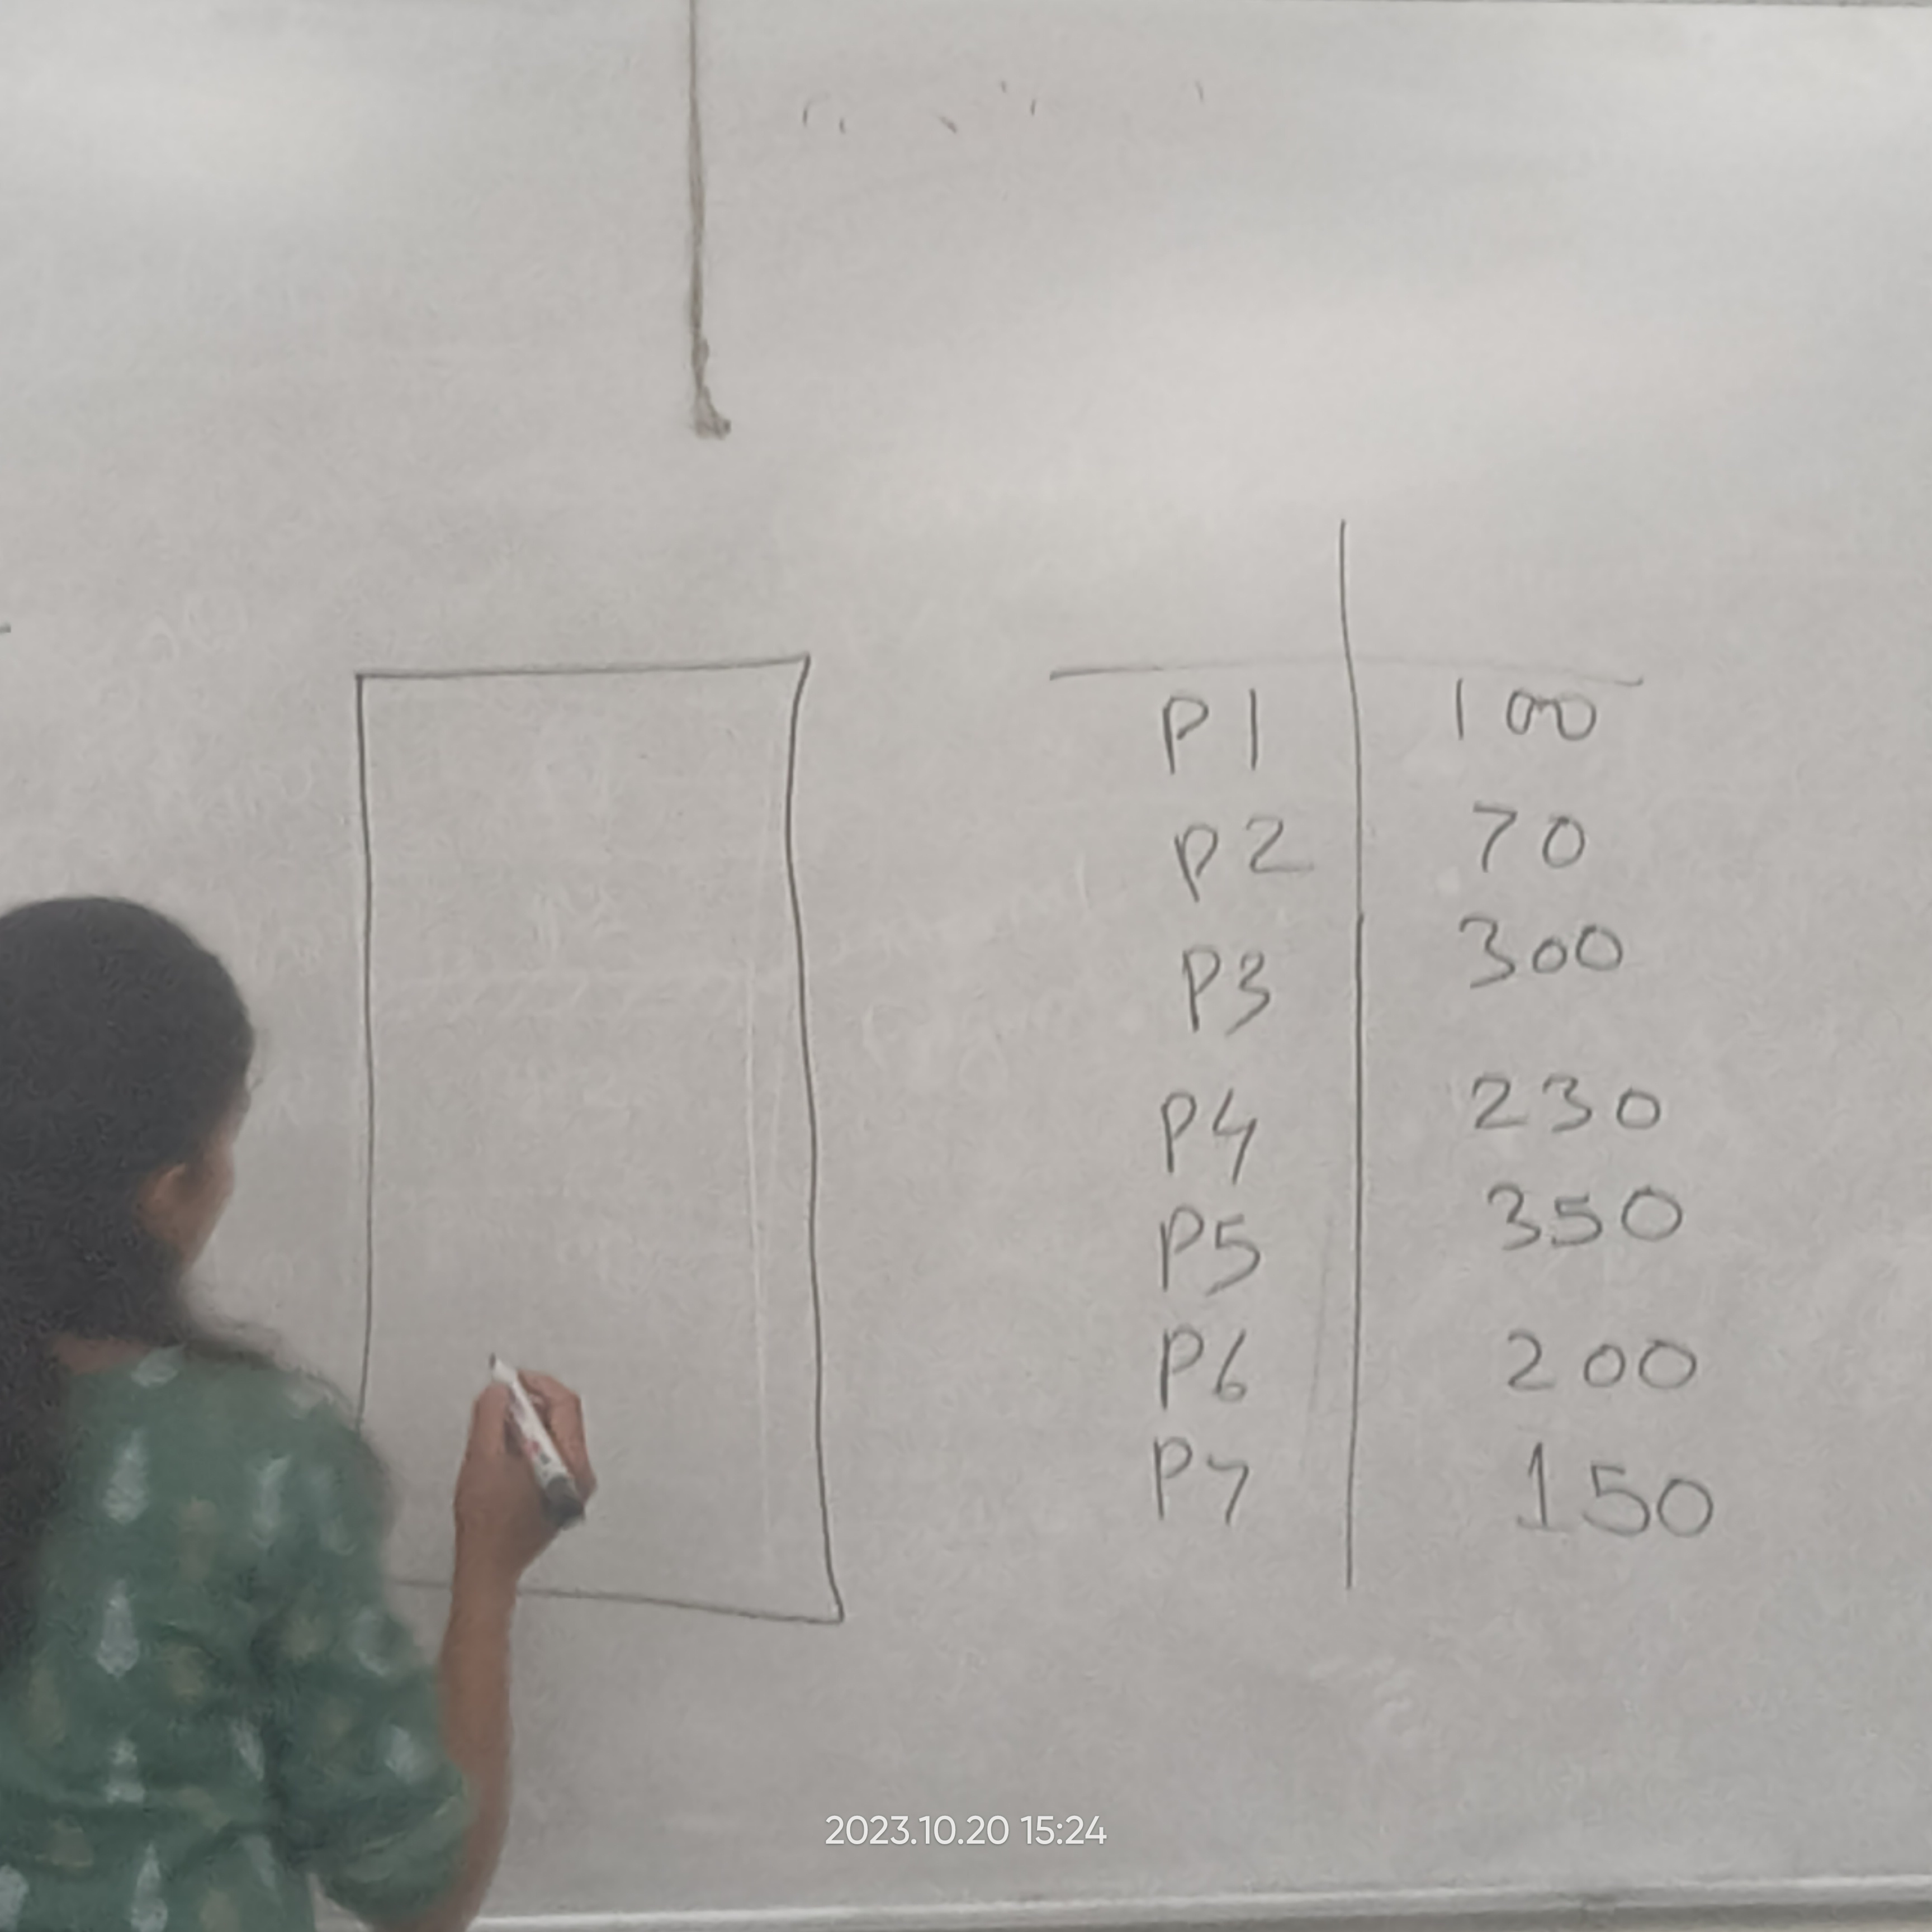 P1 100
P2 70
P3 300
P4 230
P5 350
P6 200
P7 150
2023.10.20 15:24